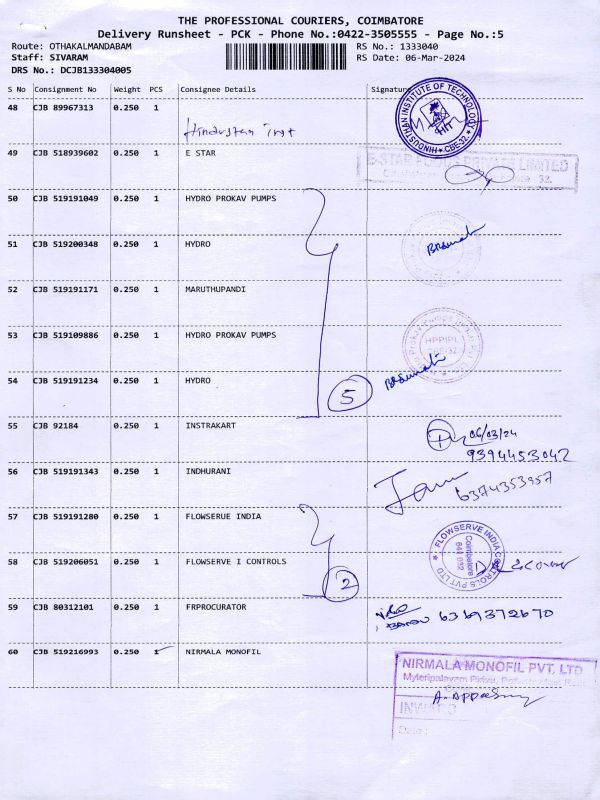 THE PROFESSIONAL COURIERS, COIMBATORE
Delivery Runsheet - PCK - Phone No.:0422-3505555 - Page No.:5
Route: OTHAKALMANDABAM RS No.: 1333040
Staff: SIVARAM RS Date: 06-Mar-2024
DRS No.: DCJB133304005
S No Consignment No Weight PCS Consignee Details Signature
48 CJB 89967313 0.250 1
Hindustan Inst
HINDUSTHAN INSTITUTE OF TECHNOLOGY * CBE-32 *
HIT
49 CJB 518939602 0.250 1 E STAR
LIMITED
50 CJB 519191049 0.250 1 HYDRO PROKAV PUMPS
51 CJB 519200348 0.250 1 HYDRO
52 CJB 519191171 0.250 1 MARUTHUPANDI
53 CJB 519109886 0.250 1 HYDRO PROKAV PUMPS
HPPIPL
54 CJB 519191234 0.250 1 HYDRO
5
55 CJB 92184 0.250 1 INSTRAKART
06/03/24
9394453042
56 CJB 519191343 0.250 1 INDHURANI
6374353957
57 CJB 519191280 0.250 1 FLOWSERUE INDIA
FLOWSERVE INDIA CONTROLS PVT LTD
Coimbatore
641 032
58 CJB 519206051 0.250 1 FLOWSERVE I CONTROLS
2
59 CJB 80312101 0.250 1 FRPROCURATOR
6369372670
60 CJB 519216993 0.250 1 NIRMALA MONOFIL
NIRMALA MONOFIL PVT. LTD
Myleripalayam Pirivu,
INWARD
Date :